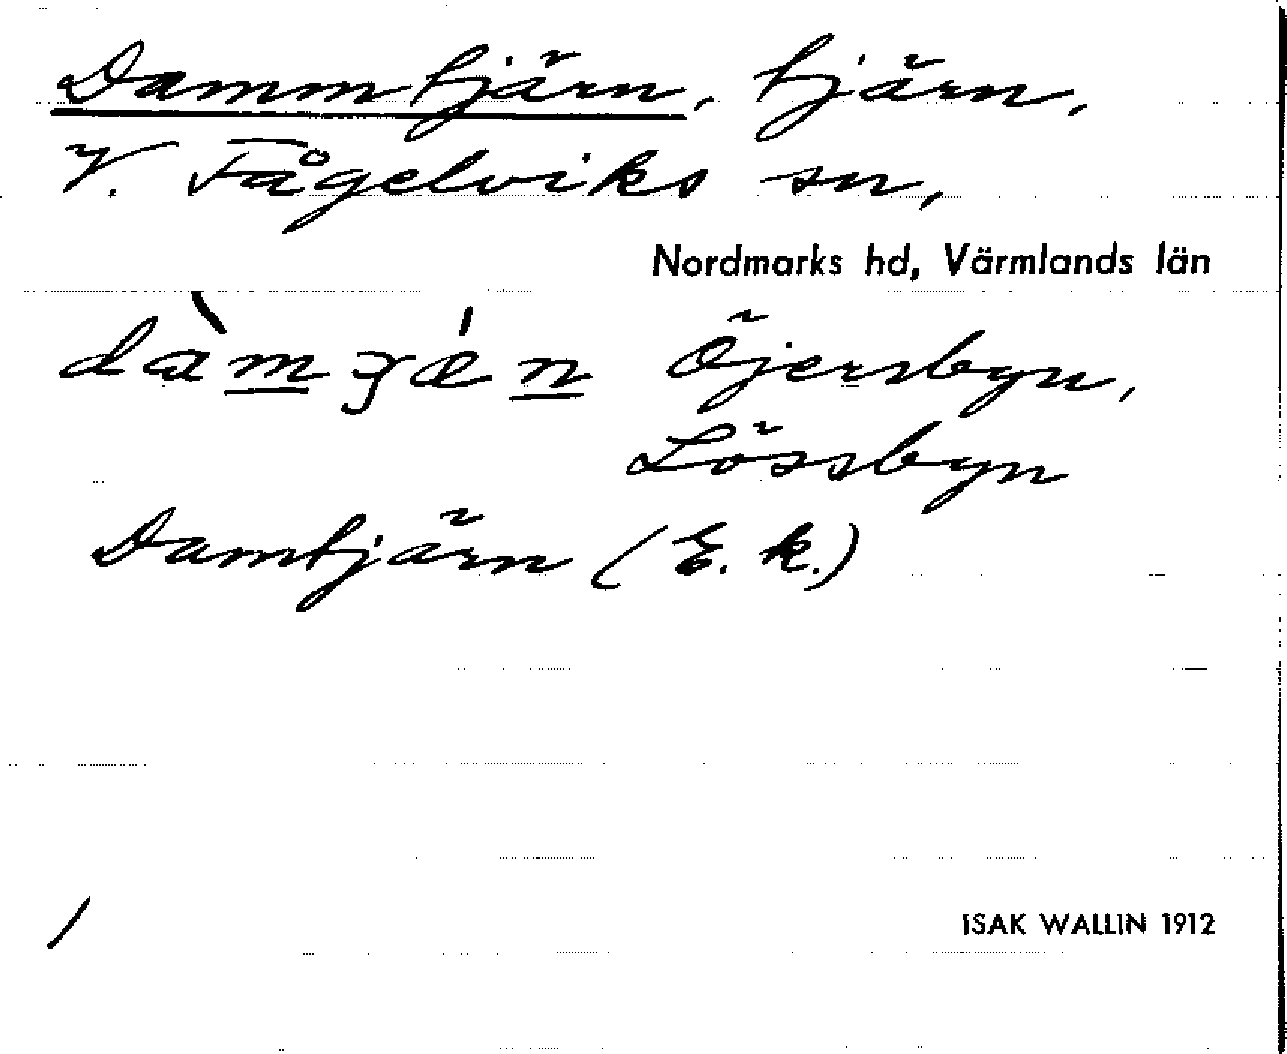 Dammtjärn, tjärn,
V. Fågelviks sn,
Nordmarks hd, Värmlands län
Öjersbyn,
Lössbyn
Damtjärn (E. k.)
/
ISAK WALLIN 1912